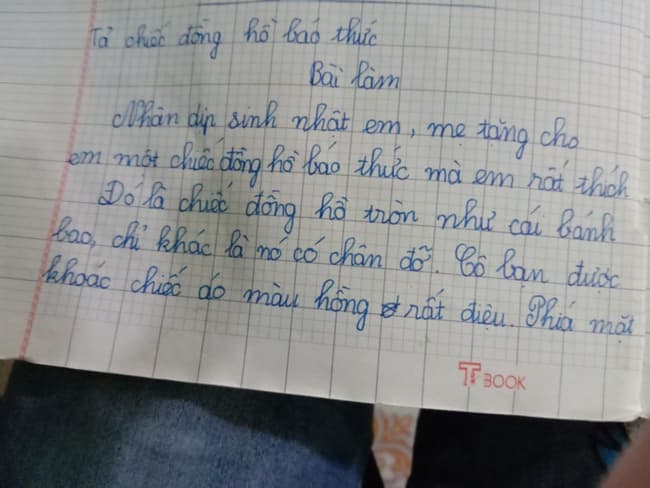 Tả chiếc đồng hồ báo thức
Bài làm
Nhân dịp sinh nhật em, mẹ tặng cho
em một chiếc đồng hồ báo thức mà em rất thích
Đó là chiếc đồng hồ tròn như cái bánh
bao, chỉ khác là nó có chân đỡ. Cô bạn được
khoác chiếc áo màu hồng rất điệu. Phía mặt
TBOOK